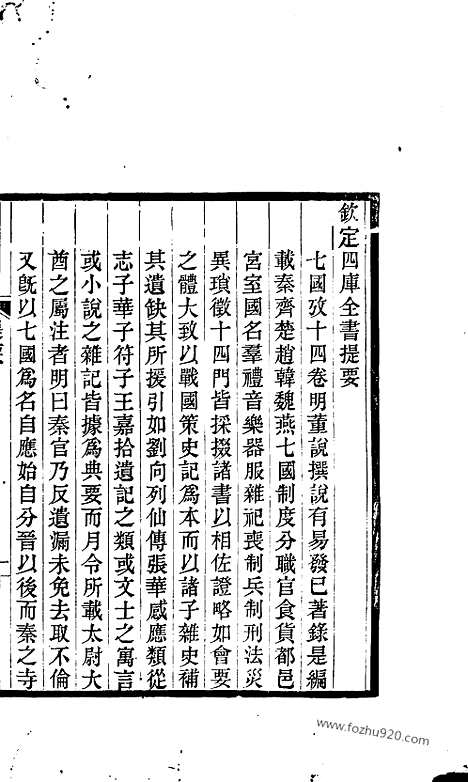 欽定四庫全書提要
七國攷十四卷明董說撰說有易發已著錄是編
載秦齊楚趙韓魏燕七國制度分職官食貨都邑
宮室國名羣禮音樂器服雜祀喪制兵制刑法災
異瑣徵十四門皆採掇諸書以相佐證略如會要
之體大致以戰國策史記爲本而以諸子雜史補
其遺缺其所援引如劉向列仙傳張華感應類從
志子華子符子王嘉拾遺記之類或文士之寓言
或小說之雜記皆據爲典要而月令所載太尉大
酋之屬注者明曰秦官乃反遺漏未免去取不倫
又旣以七國爲名自應始自分晉以後而秦之寺
www.fozhu920.com